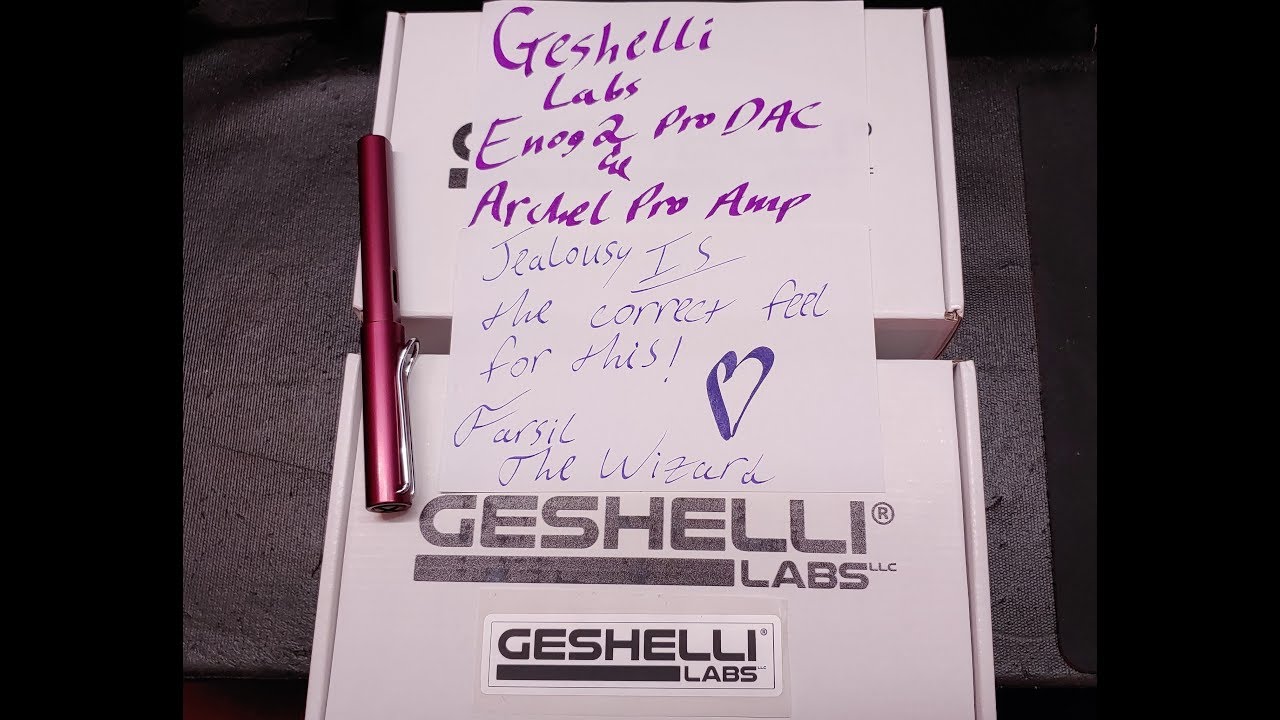 Geshelli
Labs
Enog2 Pro DAC
&
Archel Pro Amp
Jealousy IS
the correct feel
for this!
Farsil
The Wizard
GESHELLI®
LABS LLC
GESHELLI®
LABS LLC